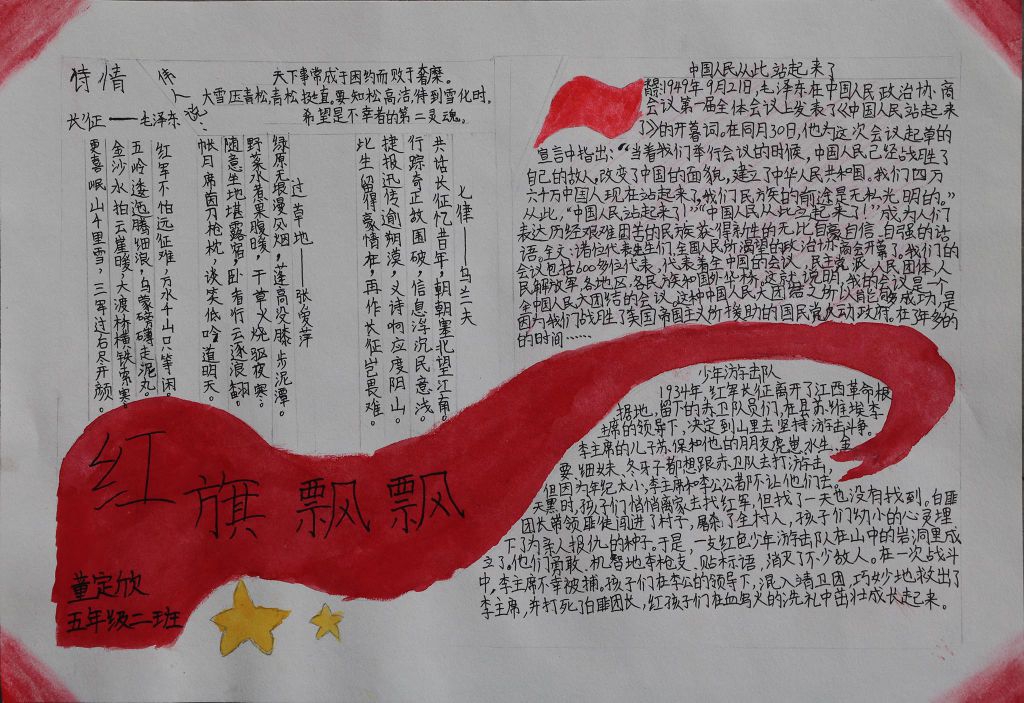 诗情
长征——毛泽东
红军不怕远征难,万水千山只等闲。
五岭逶迤腾细浪,乌蒙磅礴走泥丸。
金沙水拍云崖暖,大渡桥横铁索寒。
更喜岷山千里雪,三军过后尽开颜。
伟人说:
天下事常成于困约而败于奢糜。
大雪压青松,青松挺直。要知松高洁,待到雪化时。
希望是不幸者的第二灵魂。
过草地——张爱萍
绿原无垠漫风烟,蓬高没膝步泥潭。
野菜水煮果腹暖,干草火烧驱夜寒。
随意坐地堪露宿,卧看行云逐浪翻。
帐月席茵刀枪枕,谈笑低吟道明天。
七律——乌兰夫
共话长征忆昔年,朝朝塞北望江南。
行踪奇正故围破,信息浮沉民意浅。
捷报迅传逾朔漠,义诗响应度阴山。
此生留得豪情在,再作长征岂畏难。
中国人民从此站起来了
1949年9月21日,毛泽东在中国人民政治协商
会议第一届全体会议上发表了《中国人民站起来
了》的开幕词。在同月30日,他为这次会议起草的
宣言中指出:“当着我们举行会议的时候,中国人民已经战胜了
自己的敌人,改变了中国的面貌,建立了中华人民共和国。我们四万
六千万中国人现在站起来了,我们民族的前途是无私光明的。”
从此,“中国人民站起来了!”“中国人民从此立起来了!”成为人们
表达历经艰难困苦的民族获得新生的无比自豪自信、自强的话
语。全文:诸位代表先生们,全国人民所渴望的政治协商会开幕了。我们的
会议包括600多位代表,代表着全中国的会议、民主党派、人民团体,人
民解放军,各地区,各民族和国外华桥。这就说明,我的会议是一个
全国人民大团结的会议。这种中国人民大团结之所以能够成功,是
因为我们战胜了美国帝国主义所援助的国民党反动政府。在3年多的
的时间……
少年游击队
1934年,红军长征离开了江西革命根
据地,留下的赤卫队员们,在县苏维埃李
主席的领导下,决定到山里去坚持游击斗争。
李主席的儿子苏保和他的朋友虎崽、水生、金
要、细妹、冬牙子都想跟赤卫队去打游击,
但因为年纪太小,李主席和李公公都不让他们去。
天黑时,孩子们悄悄离家去找红军,但找了一天也没有找到。白匪
团长带领匪徒闯进了村子,屠杀了全村人,孩子们幼小的心灵埋
下了为亲人报仇的种子。于是,一支红色少年游击队在山中的岩洞里成
立了。他们勇敢、机智地夺枪支、贴标语,消灭了不少敌人。在一次战斗
中,李主席不幸被捕。孩子们在李公的领导下,混入靖卫团,巧妙地救出了
李主席,并打死了白匪团长,红孩子们在血与火的洗礼中茁壮成长起来。
红旗飘飘
董定欣
五年级二班